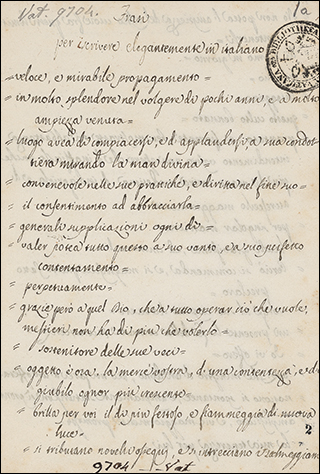 Vat. 9704. Frasi 1a
per scrivere elegantemente in italiano
= veloce, e mirabile propagamento =
= in molto splendore nel volgere di pochi anni, e a molta
ampiezza venuta =
= luogo avea di compiacersi, ed applaudersi a sua condot
tiera mirando la man divina
= convenevole nelle sue prattiche, e diritta nel fine suo =
= il consentimento ad abbracciarla =
= generali supplicazioni ogni dì =
= valer potea tutto questo a suo vanto, e a suo perfetto
contentamento =
= perpetuamente =
= grazie però a quel Dio, che a tutto operar ciò che vuole,
mestieri non ha di più che volerlo =
= sostenitore delle sue veci =
= oggetto è ora, la mercè vostra, di una contentezza, e di
giubilo ognor più crescente
= brilla per voi il dì più festoso, e fiammeggia di nuova
luce =
2
= si tributano novelli ossequj, e s'intrecciano
9704 Vat